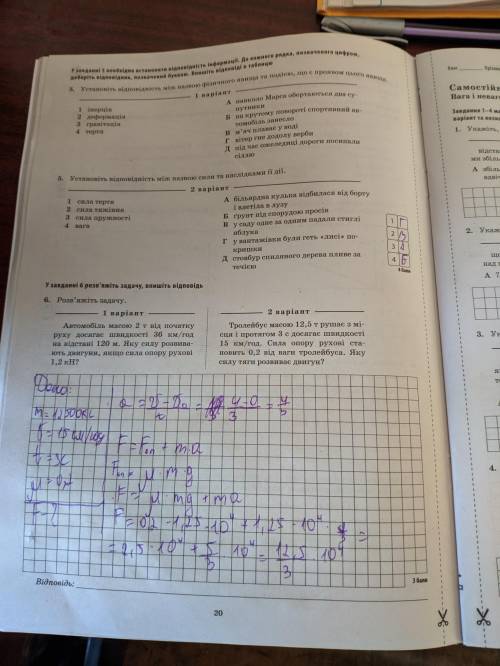 У завданні 5 необхідно встановити відповідність інформації. До кожного рядка, позначеного цифрою,
доберіть відповідник, позначений буквою. Впишіть відповіді в таблицю
5. Установіть відповідність між назвою фізичного явища та подією, що є проявом цього явища.
1 варіант
1 інерція
2 деформація
3 гравітація
4 тертя
А навколо Марса обертаються два супутники
Б на крутому повороті спортивний автомобіль занесло
В м'яч плаває у воді
Г вітер гне додолу верби
Д під час ожеледиці дороги посипали сіллю
5. Установіть відповідність між назвою сили та наслідками її дії.
2 варіант
1 сила тертя
2 сила тяжіння
3 сила пружності
4 вага
А більярдна кулька відбилася від борту
і влетіла в лузу
Б ґрунт під спорудою просів
В у саду одне за одним падали стиглі
яблука
Г у вантажівки були геть «лисі» по-
кришки
Д стовбур спиляного дерева пливе за
течією
1 Г
2 В
3 А
4 Б
4 бали
У завданні 6 розв'яжіть задачу, впишіть відповідь
6. Розв'яжіть задачу.
1 варіант
Автомобіль масою 2 т від початку
руху досягає швидкості 36 км/год
на відстані 120 м. Яку силу розвива-
ють двигуни, якщо сила опору рухові
1,2 кН?
2 варіант
Тролейбус масою 12,5 т рушає з мі-
сця і протягом 3 с досягає швидкості
15 км/год. Сила опору рухові ста-
новить 0,2 від ваги тролейбуса. Яку
силу тяги розвиває двигун?
Дано:
m = 12500кг
t = 3с
F - ?
F = Fоп + m·a
Fоп = μ·m·g
F = μ mg + ma
F = 0,2 · 1,25 · 10⁴ + 1,25 · 10⁴ ·
= 2,5 · 10⁴ + 5/3 · 10⁴ = 12,5/3 · 10⁴
Відповідь:
3 бали
20
Самостійн
Вага і невагом
1.
2.
3.
4.